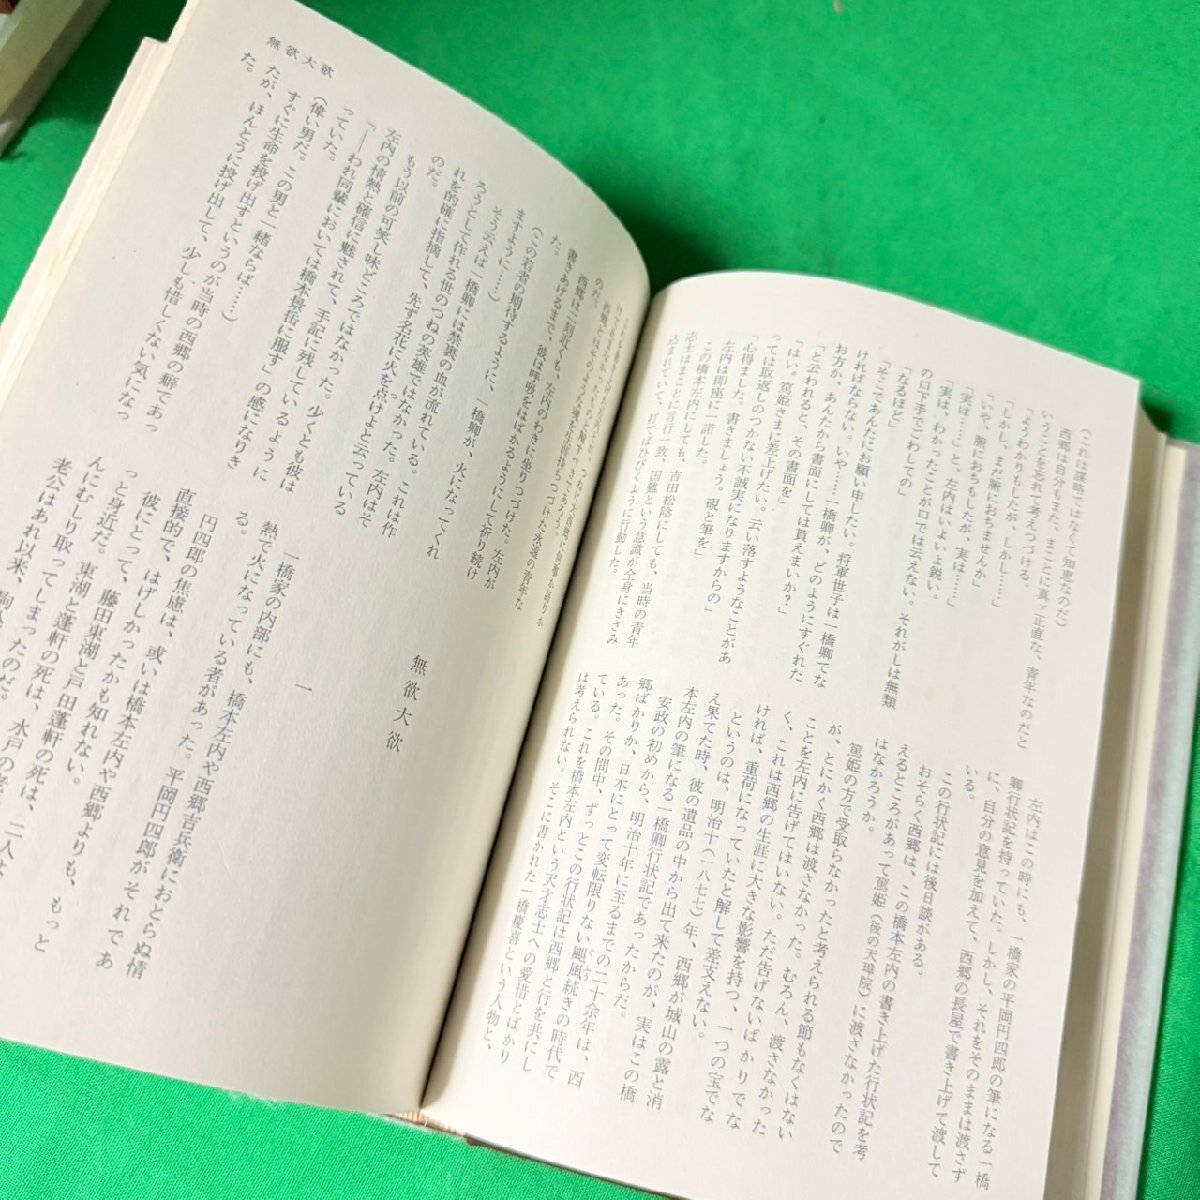 （これは謀略ではなくて知恵なのだ）
西郷は自分もまた、まことに真ッ正直な、青年なのだと
いうことを忘れて考えつづける。
「ようわかりもしたが、しかし……」
「しかし、まだ腑におちませんか」
「いや、腑におちもしたが、実は……」
「実は……」と、左内はいよいよ鋭い。
「実は、わかったことが口では云えない。それがしは無類
の口下手でごわしての」
「なるほど」
「そこであんたにお願い申したい。将軍世子は一橋卿でな
ければならない。いや……一橋卿が、どのようにすぐれた
お方か、あんたから書面にしては貰えまいか？」
「と云われると、その書面を」
「はい。篤姫さまに差上げたい。云い落すようなことがあ
っては取返しのつかない不誠実になりますからの」
「心得ました。書きましょう。硯と筆を」
左内は即座に一諾した。
この橋本左内にしても、吉田松陰にしても、当時の青年
志士はまことに言行一致、国難という意識が全身にきざみ
込まれていて、打てばひびくように行動した。
左内はこの時にも、一橋家の平岡円四郎の筆になる一橋
卿行状記を持っていた。しかし、それをそのままは渡さず
に、自分の意見を加えて、西郷の長屋で書き上げて渡して
いる。
この行状記には後日談がある。
おそらく西郷は、この橋本左内の書き上げた行状記を考
えるところがあって篤姫（後の天璋院）に渡さなかったので
はなかろうか。
篤姫の方で受取らなかったと考えられる節もなくはない
が、とにかく西郷は渡さなかった。むろん、渡さなかった
ことを左内に告げてはいない。ただ告げないばかりでな
く、これは西郷の生涯に大きな影響を持つ、一つの宝でな
ければ、重荷になっていたと解して差支えない。
というのは、明治十（一八七七）年、西郷が城山の露と消
え果てた時、彼の遺品の中から出て来たのが、実はこの橋
本左内の筆になる一橋卿行状記であったからだ。
安政の初めから、明治十年に至るまでの二十余年は、西
郷ばかりか、日本にとって変転限りない颶風続きの時代で
あった。その間中、ずっとこの行状記は西郷と行を共にし
ている。これを橋本左内という天才志士への愛惜とばかり
は考えられない。そこに書かれた一橋慶喜という人物と、
無欲大欲
のだ。
西郷とはそのような魂を生涯持ちつづけた永遠の青年な
西郷は一刻近くも、左内のわきに坐りつづけた。左内が
書きあげるまで、彼は呼吸をはばかるようにして祈り続け
た。
（この若者の期待するように、一橋卿が、火になってくれ
ますように……）
そう云えば一橋卿には禁裏の血が流れている。これは作
ろうとして作れる世のつねの英雄ではなかった。左内はそ
れを的確に指摘して、先ず名花に火を点けよと云っている
のだ。
もう以前の可笑し味どころではなかった。少くとも彼は
左内の情熱と確信に魅されて、手記に残しているように
「――われ同輩においては橋本景岳に服す」の感になりき
っていた。
（偉い男だ。この男と一緒ならば……）
すぐに生命を投げ出すというのが当時の西郷の癖であっ
たが、ほんとうに投げ出して、少しも惜しくない気になっ
た。
無欲大欲
一
一橋家の内部にも、橋本左内や西郷吉兵衛におとらぬ情
熱で火になっている者があった。平岡円四郎がそれであ
る。
円四郎の焦慮は、或いは橋本左内や西郷よりも、もっと
直接的で、はげしかったかも知れない。
彼にとって、藤田東湖と戸田蓬軒の死は、水戸の老
っと身近だ。東湖と蓬軒の死は、二人は
んにむしり取ってしまったのだ。
老公はあれ以来、